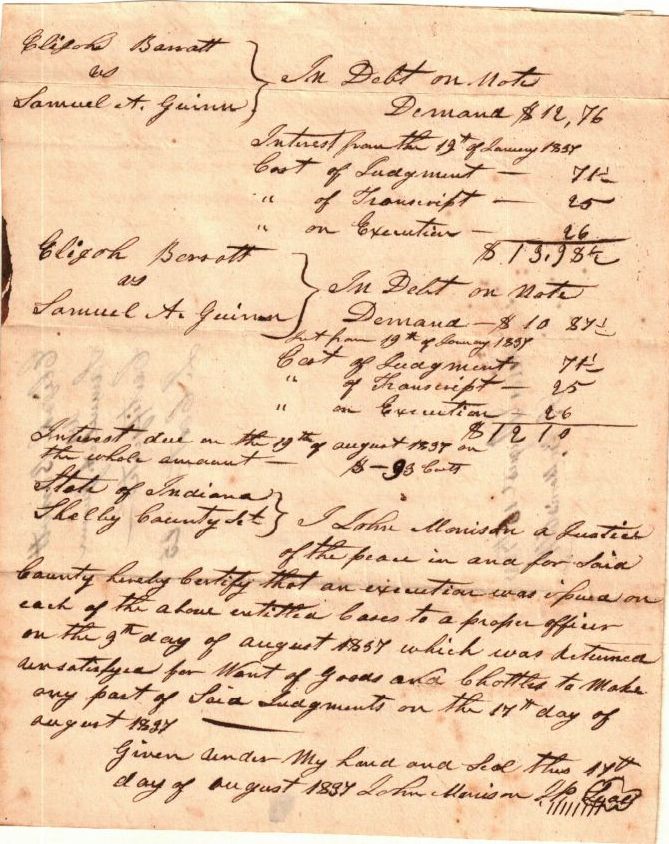 Elijah Barratt
vs
Samuel A. Guinn
In Debt on Note
Demand $12,76
Interest from the 19th of January 1837
Cost of Judgment — 71½
" of Transcript — 25
" on Execution — 26
$13,98½
Elijah Barratt
vs
Samuel A. Guinn
In Debt on Note
Demand — $10 87½
Int from 19th of January 1837
Cost of Judgment 71½
" of Transcript — 25
" on Execution — 26
$12 10
Interest due on the 19th of august 1837 on
the whole amount — $ - 93 Cents
State of Indiana
Shelby County Sct
I John Morrison a Justice
of the peace in and for Said
County hereby Certify that an execution was issued on
each of the above entitled Cases to a proper officer
on the 9th day of august 1837 which was Returned
unsatisfyed for Want of Goods and Chattles to Make
any part of Said Judgments on the 17th day of
august 1837
Given under My hand and Seal this 17th
day of august 1837 John Morrison J.P. Seal